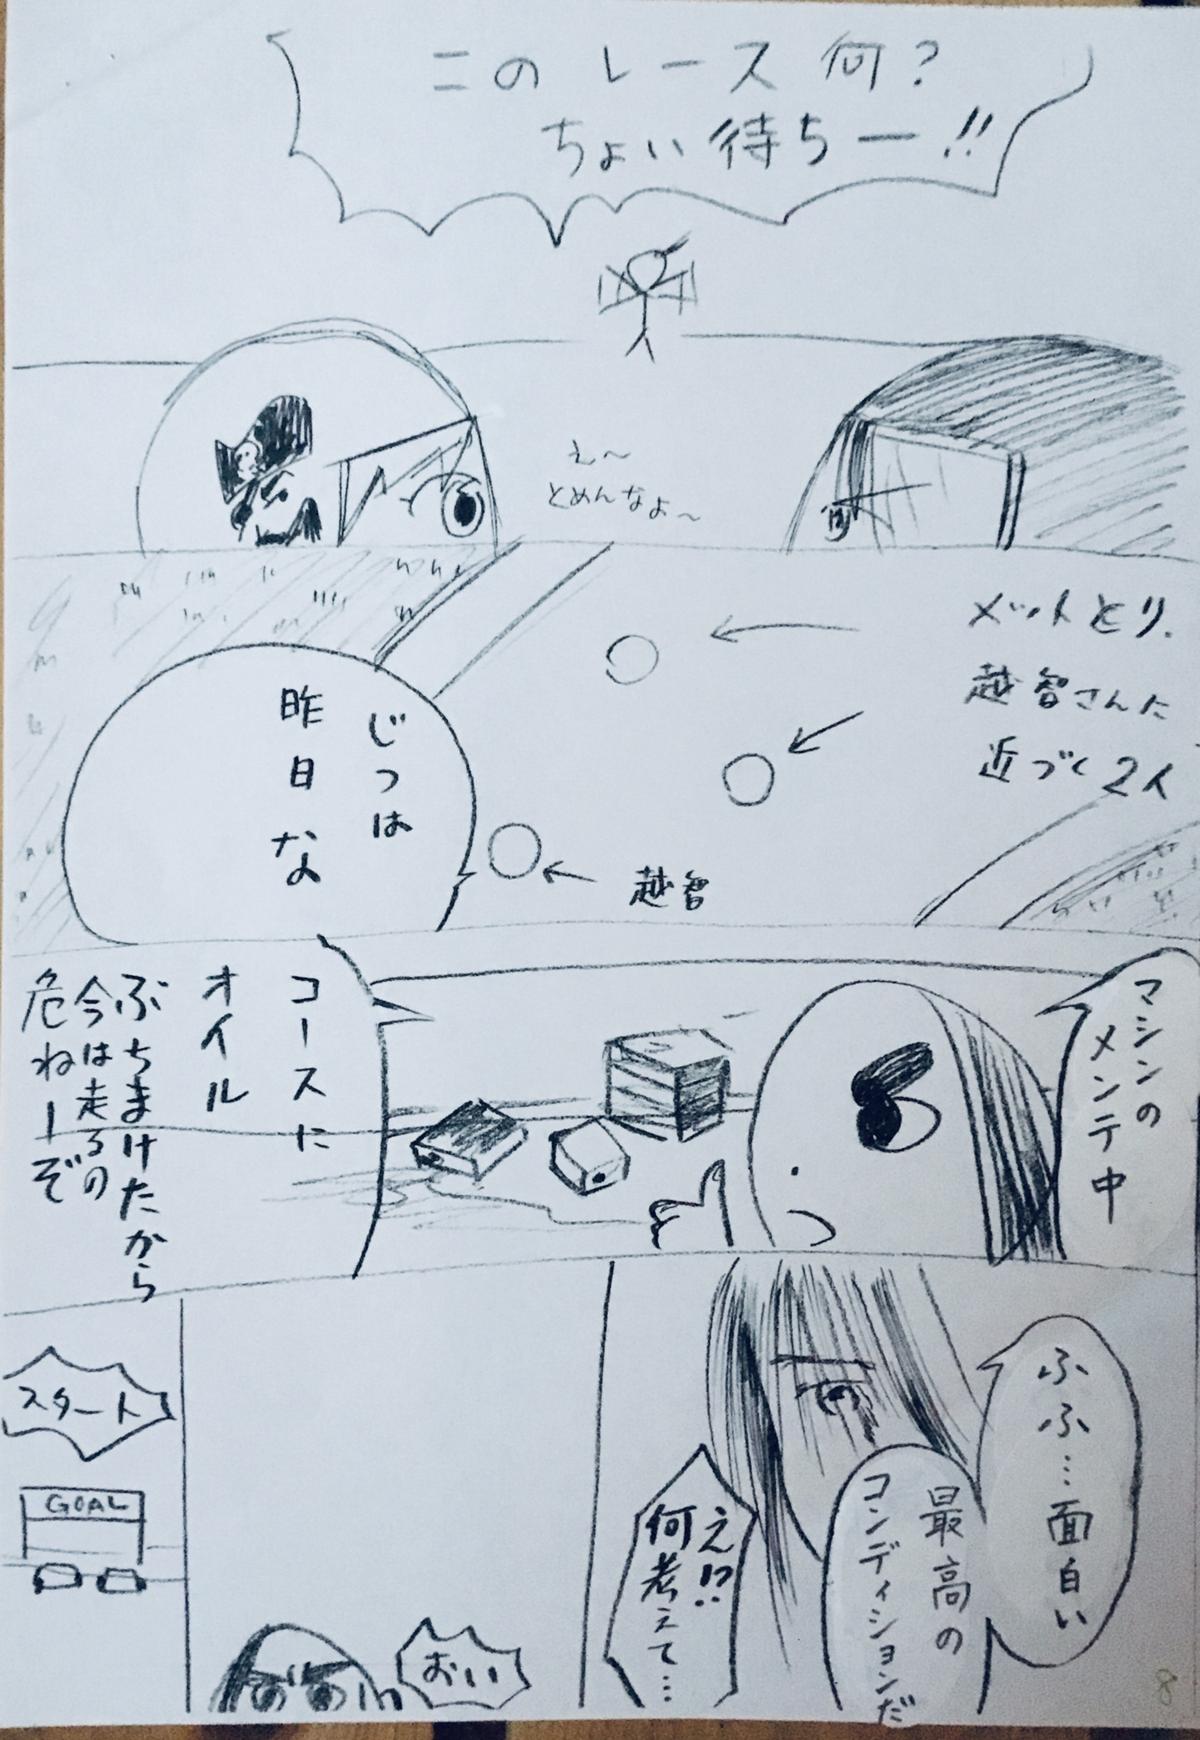 このレース何？
ちょい待ちー!!
え〜
とめんなよ〜
メットとり、
越智さんに
近づく2人
じつは
昨日な
越智
マシンの
メンテ中
コースに
オイル
ぶちまけたから
今は走るの
危ねーぞ
ふふ…面白い
最高の
コンディションだ
え!?
何考えて…
おい
スタート
GOAL
8